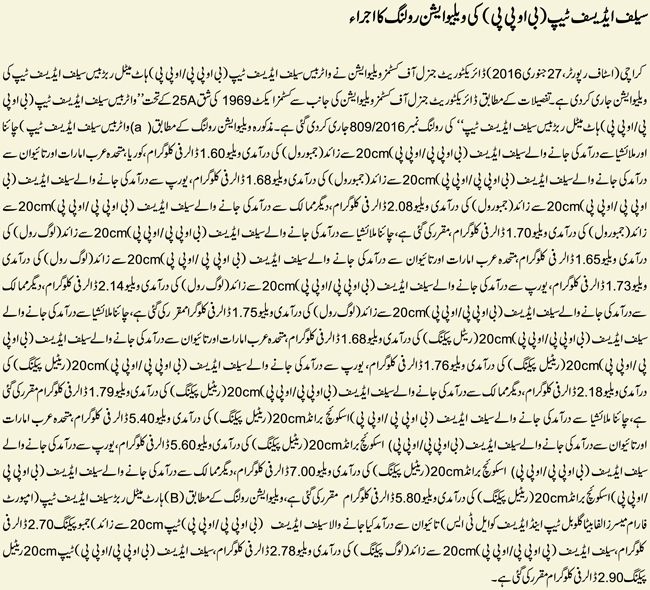 سیلف ایڈیسف ٹیپ (بی او پی پی) کی ویلیوایشن رولنگ کا اجراء
کراچی (اسٹاف رپورٹر، 27 جنوری 2016) ڈائریکٹوریٹ جنرل آف کسٹمز ویلیوایشن نے واٹربیس سیلف ایڈیسف ٹیپ (بی او پی پی/او پی پی) ہاٹ میلٹ ربڑبیس سیلف ایڈیسف ٹیپ کی
ویلیوایشن جاری کردی ہے۔ تفصیلات کے مطابق ڈائریکٹوریٹ جنرل آف کسٹمز ویلیوایشن کی جانب سے کسٹمز ایکٹ 1969 کی شق 25A کے تحت ’’واٹربیس سیلف ایڈیسف ٹیپ (بی او پی
پی/او پی پی) ہاٹ میٹل ربڑبیس سیلف ایڈیسف ٹیپ‘‘ کی رولنگ نمبر 809/2016 جاری کردی گئی ہے۔ مذکورہ ویلیوایشن رولنگ کے مطابق (a) واٹربیس سیلف ایڈیسف ٹیپ) چائنا
اور ملائشیا سے درآمد کی جانے والے سیلف ایڈیسف (بی او پی پی/او پی پی) 20cm سے زائد (جمبورول) کی درآمدی ویلیو 1.60 ڈالر فی کلوگرام، کوریا، متحدہ عرب امارات اور تائیوان سے
درآمد کی جانے والے سیلف ایڈیسف (بی او پی پی/او پی پی) 20cm سے زائد (جمبورول) کی درآمدی ویلیو 1.68 ڈالر فی کلوگرام، یورپ سے درآمد کی جانے والے سیلف ایڈیسف (بی
او پی پی/او پی پی) 20cm سے زائد (جمبورول) کی درآمدی ویلیو 2.08 ڈالر فی کلوگرام، دیگر ممالک سے درآمد کی جانے والے سیلف ایڈیسف (بی او پی پی/او پی پی) 20cm سے
زائد (جمبورول) کی درآمدی ویلیو 1.70 ڈالر فی کلوگرام، مقرر کی گئی ہے، چائنا ملائشیا سے درآمد کی جانے والے سیلف ایڈیسف (بی او پی پی/او پی پی) 20cm سے زائد (لوگ رول) کی
درآمدی ویلیو 1.65 ڈالر فی کلوگرام، متحدہ عرب امارات اور تائیوان سے درآمد کی جانے والے سیلف ایڈیسف (بی او پی پی/او پی پی) 20cm سے زائد (لوگ رول) کی درآمدی ویلیو
1.73 ڈالر فی کلوگرام، یورپ سے درآمد کی جانے والے سیلف ایڈیسف (بی او پی پی/او پی پی) 20cm سے زائد (لوگ رول) کی درآمدی ویلیو 2.14 ڈالر فی کلوگرام، دیگر ممالک
سے درآمد کی جانے والے سیلف ایڈیسف (بی او پی پی/او پی پی) 20cm سے زائد (لوگ رول) کی درآمدی ویلیو 1.75 ڈالر فی کلوگرام مقرر کی گئی ہے، چائنا ملائشیا سے درآمد کی جانے والے
سیلف ایڈیسف (بی او پی پی/او پی پی) 20cm (ریٹیل پیکنگ) کی درآمدی ویلیو 1.68 ڈالر فی کلوگرام، متحدہ عرب امارات اور تائیوان سے درآمد کی جانے والے سیلف ایڈیسف (بی او پی
پی/او پی پی) 20cm (ریٹیل پیکنگ) کی درآمدی ویلیو 1.76 ڈالر فی کلوگرام، یورپ سے درآمد کی جانے والے سیلف ایڈیسف (بی او پی پی/او پی پی) 20cm (ریٹیل پیکنگ) کی
درآمدی ویلیو 2.18 ڈالر فی کلوگرام، دیگر ممالک سے درآمد کی جانے والے سیلف ایڈیسف (بی او پی پی/او پی پی) 20cm (ریٹیل پیکنگ) کی درآمدی ویلیو 1.79 ڈالر فی کلوگرام مقرر کی گئی
ہے، چائنا ملائشیا سے درآمد کی جانے والے سیلف ایڈیسف (بی او پی پی/او پی پی) اسکوئچ برانڈ 20cm (ریٹیل پیکنگ) کی درآمدی ویلیو 5.40 ڈالر فی کلوگرام، متحدہ عرب امارات
اور تائیوان سے درآمد کی جانے والے سیلف ایڈیسف (بی او پی پی/او پی پی) اسکوئچ برانڈ 20cm (ریٹیل پیکنگ) کی درآمدی ویلیو 5.60 ڈالر فی کلوگرام، یورپ سے درآمد کی جانے والے
سیلف ایڈیسف (بی او پی پی/او پی پی) اسکوئچ برانڈ 20cm (ریٹیل پیکنگ) کی درآمدی ویلیو 7.00 ڈالر فی کلوگرام، دیگر ممالک سے درآمد کی جانے والے سیلف ایڈیسف (بی او پی پی
/او پی پی) اسکوئچ برانڈ 20cm (ریٹیل پیکنگ) کی درآمدی ویلیو 5.80 ڈالر فی کلوگرام مقرر کی گئی ہے، ویلیوایشن رولنگ کے مطابق (B) ہارٹ میٹل ربڑ سیلف ایڈیسف ٹیپ (امپورٹ
فارام میسرز الفابیٹا گلوبل ٹیپ اینڈ ایڈیسف کو ایل ٹی ایس) تائیوان سے درآمد کیا جانے والا سیلف ایڈیسف (بی او پی پی/او پی پی) ٹیپ 20cm سے زائد) جمبو پیکنگ 2.70 ڈالر فی
کلوگرام، سیلف ایڈیسف (بی او پی پی/او پی پی) 20cm سے زائد (لوگ پیکنگ) کی درآمدی ویلیو 2.78 ڈالر فی کلوگرام، سیلف ایڈیسف (بی او پی پی/او پی پی) ٹیپ 20cm ریٹیل
پیکنگ 2.90 ڈالر فی کلوگرام مقرر کی گئی ہے۔